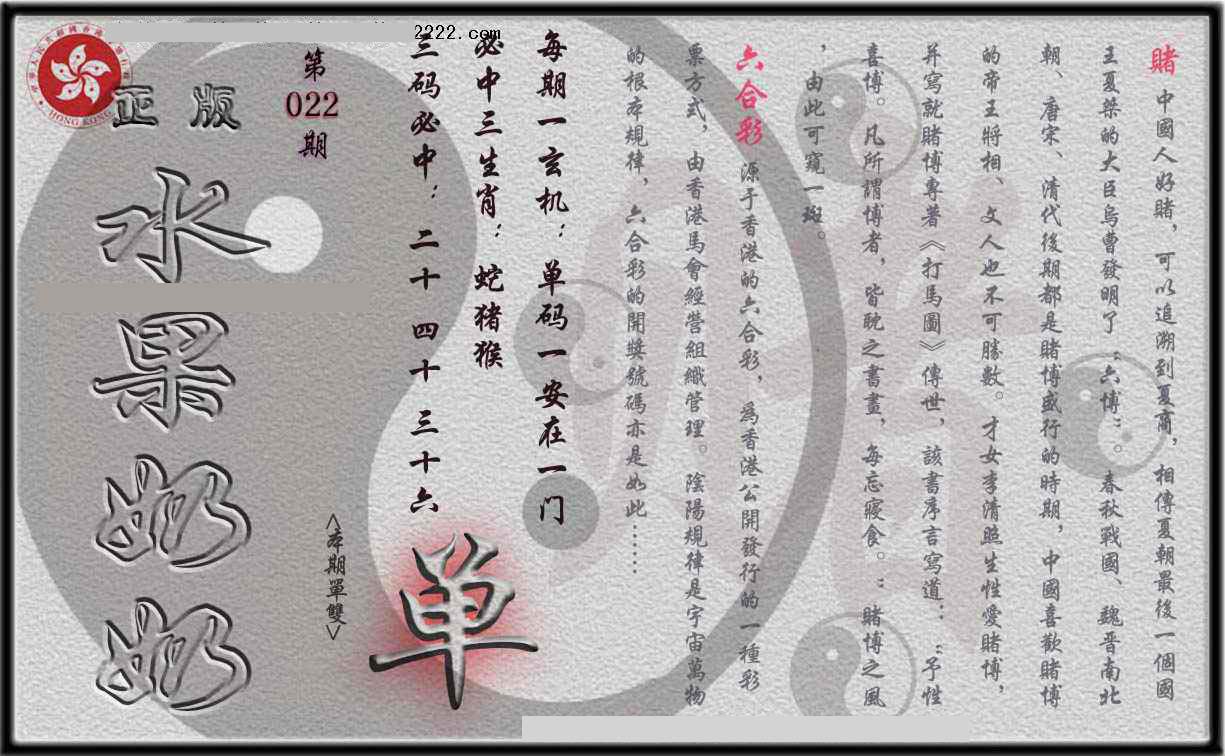 賭 中國人好賭，可以追溯到夏商，相傳夏朝最後一個國
王夏桀的大臣烏曹發明了“六博”。春秋戰國、魏晋南北
朝、唐宋、清代後期都是賭博盛行的時期，中國喜歡賭博
的帝王將相、文人也不可勝數。才女李清照生性愛賭博，
并寫就賭博專著《打馬圖》傳世，該書序言寫道：“予性
喜博。凡所謂博者，皆耽之書畫，每忘寢食。“賭博之風
，由此可窺一斑。
六合彩 源于香港的六合彩，爲香港公開發行的一種彩
票方式，由香港馬會經營組織管理。陰陽規律是宇宙萬物
的根本規律，六合彩的開獎號碼亦是如此……
每期一玄机：单码一安在一门
必中三生肖：蛇猪猴
三码必中：二十 四十 三十六
2222.com
第
022
期
正版
水果奶奶
<本期單雙>
单
HONG KONG